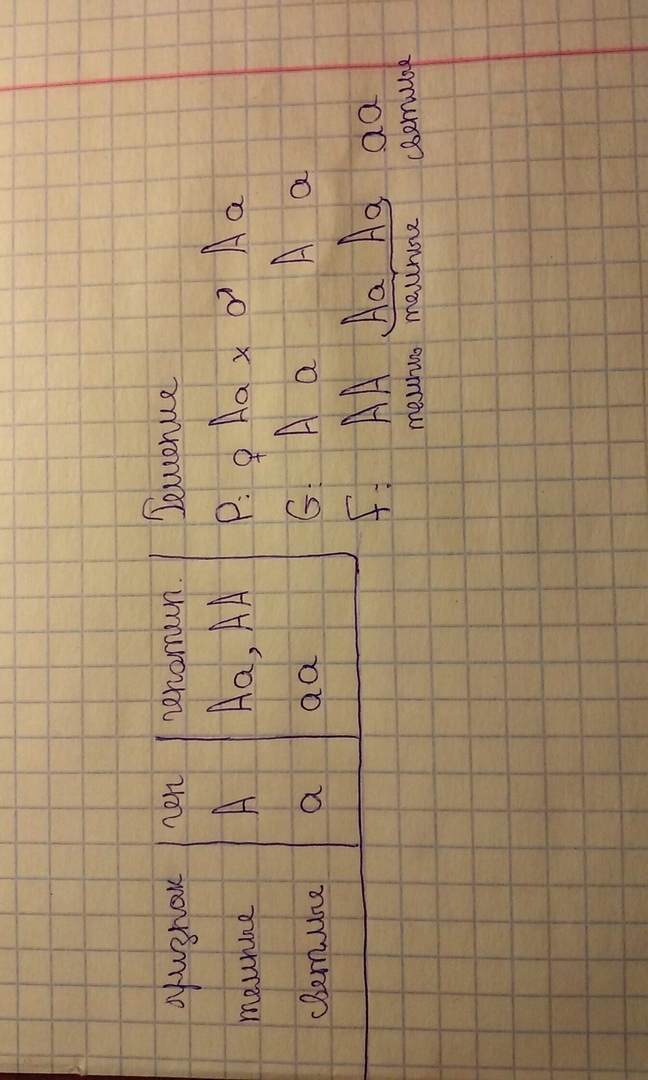 признак | ген | генотип. | Решение
темные | A | Aa, AA | P: ♀ Aa x ♂ Aa
светлые | a | aa | G: A a A a
F: AA Aa Aa aa
темные темные светлые